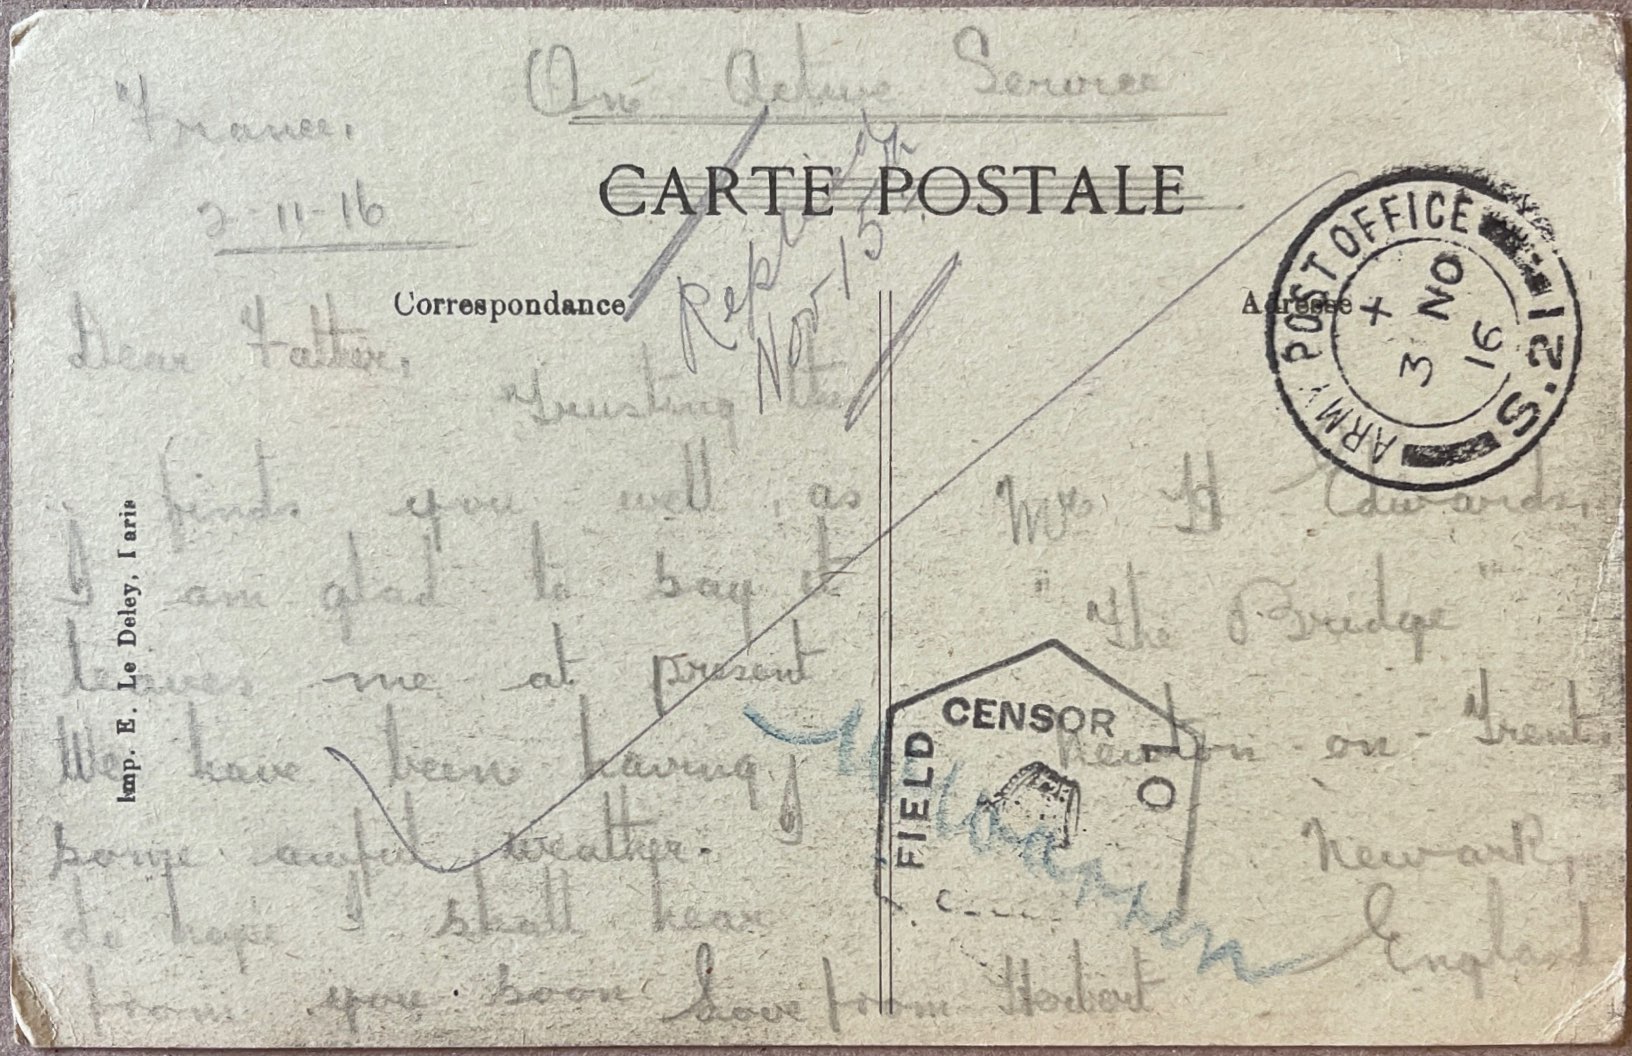 On Active Service
France.
2-11-16
CARTE POSTALE
Replied
Nov 15th
Correspondance
Adresse
ARMY POST OFFICE
S.21
X
3 NO
16
Dear Father,
Trusting this
finds you well, as
I am glad to say it
leaves me at present
We have been having
some awful weather. I
do hope I shall hear
from you soon Love from Herbert
Mr H Edwards,
"The Bridge"
Newton-on-Trent,
Newark,
England
FIELD CENSOR
Imp. E. Le Deley, Paris